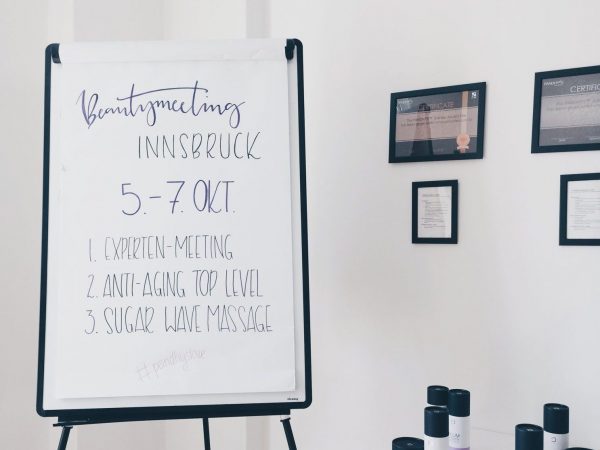 Beautymeeting
INNSBRUCK
5.-7. OKT.
1. EXPERTEN-MEETING
2. ANTI-AGING TOP LEVEL
3. SUGAR WAVE MASSAGE
#pandhyslove
CERTIFICATE
CERTIFIC